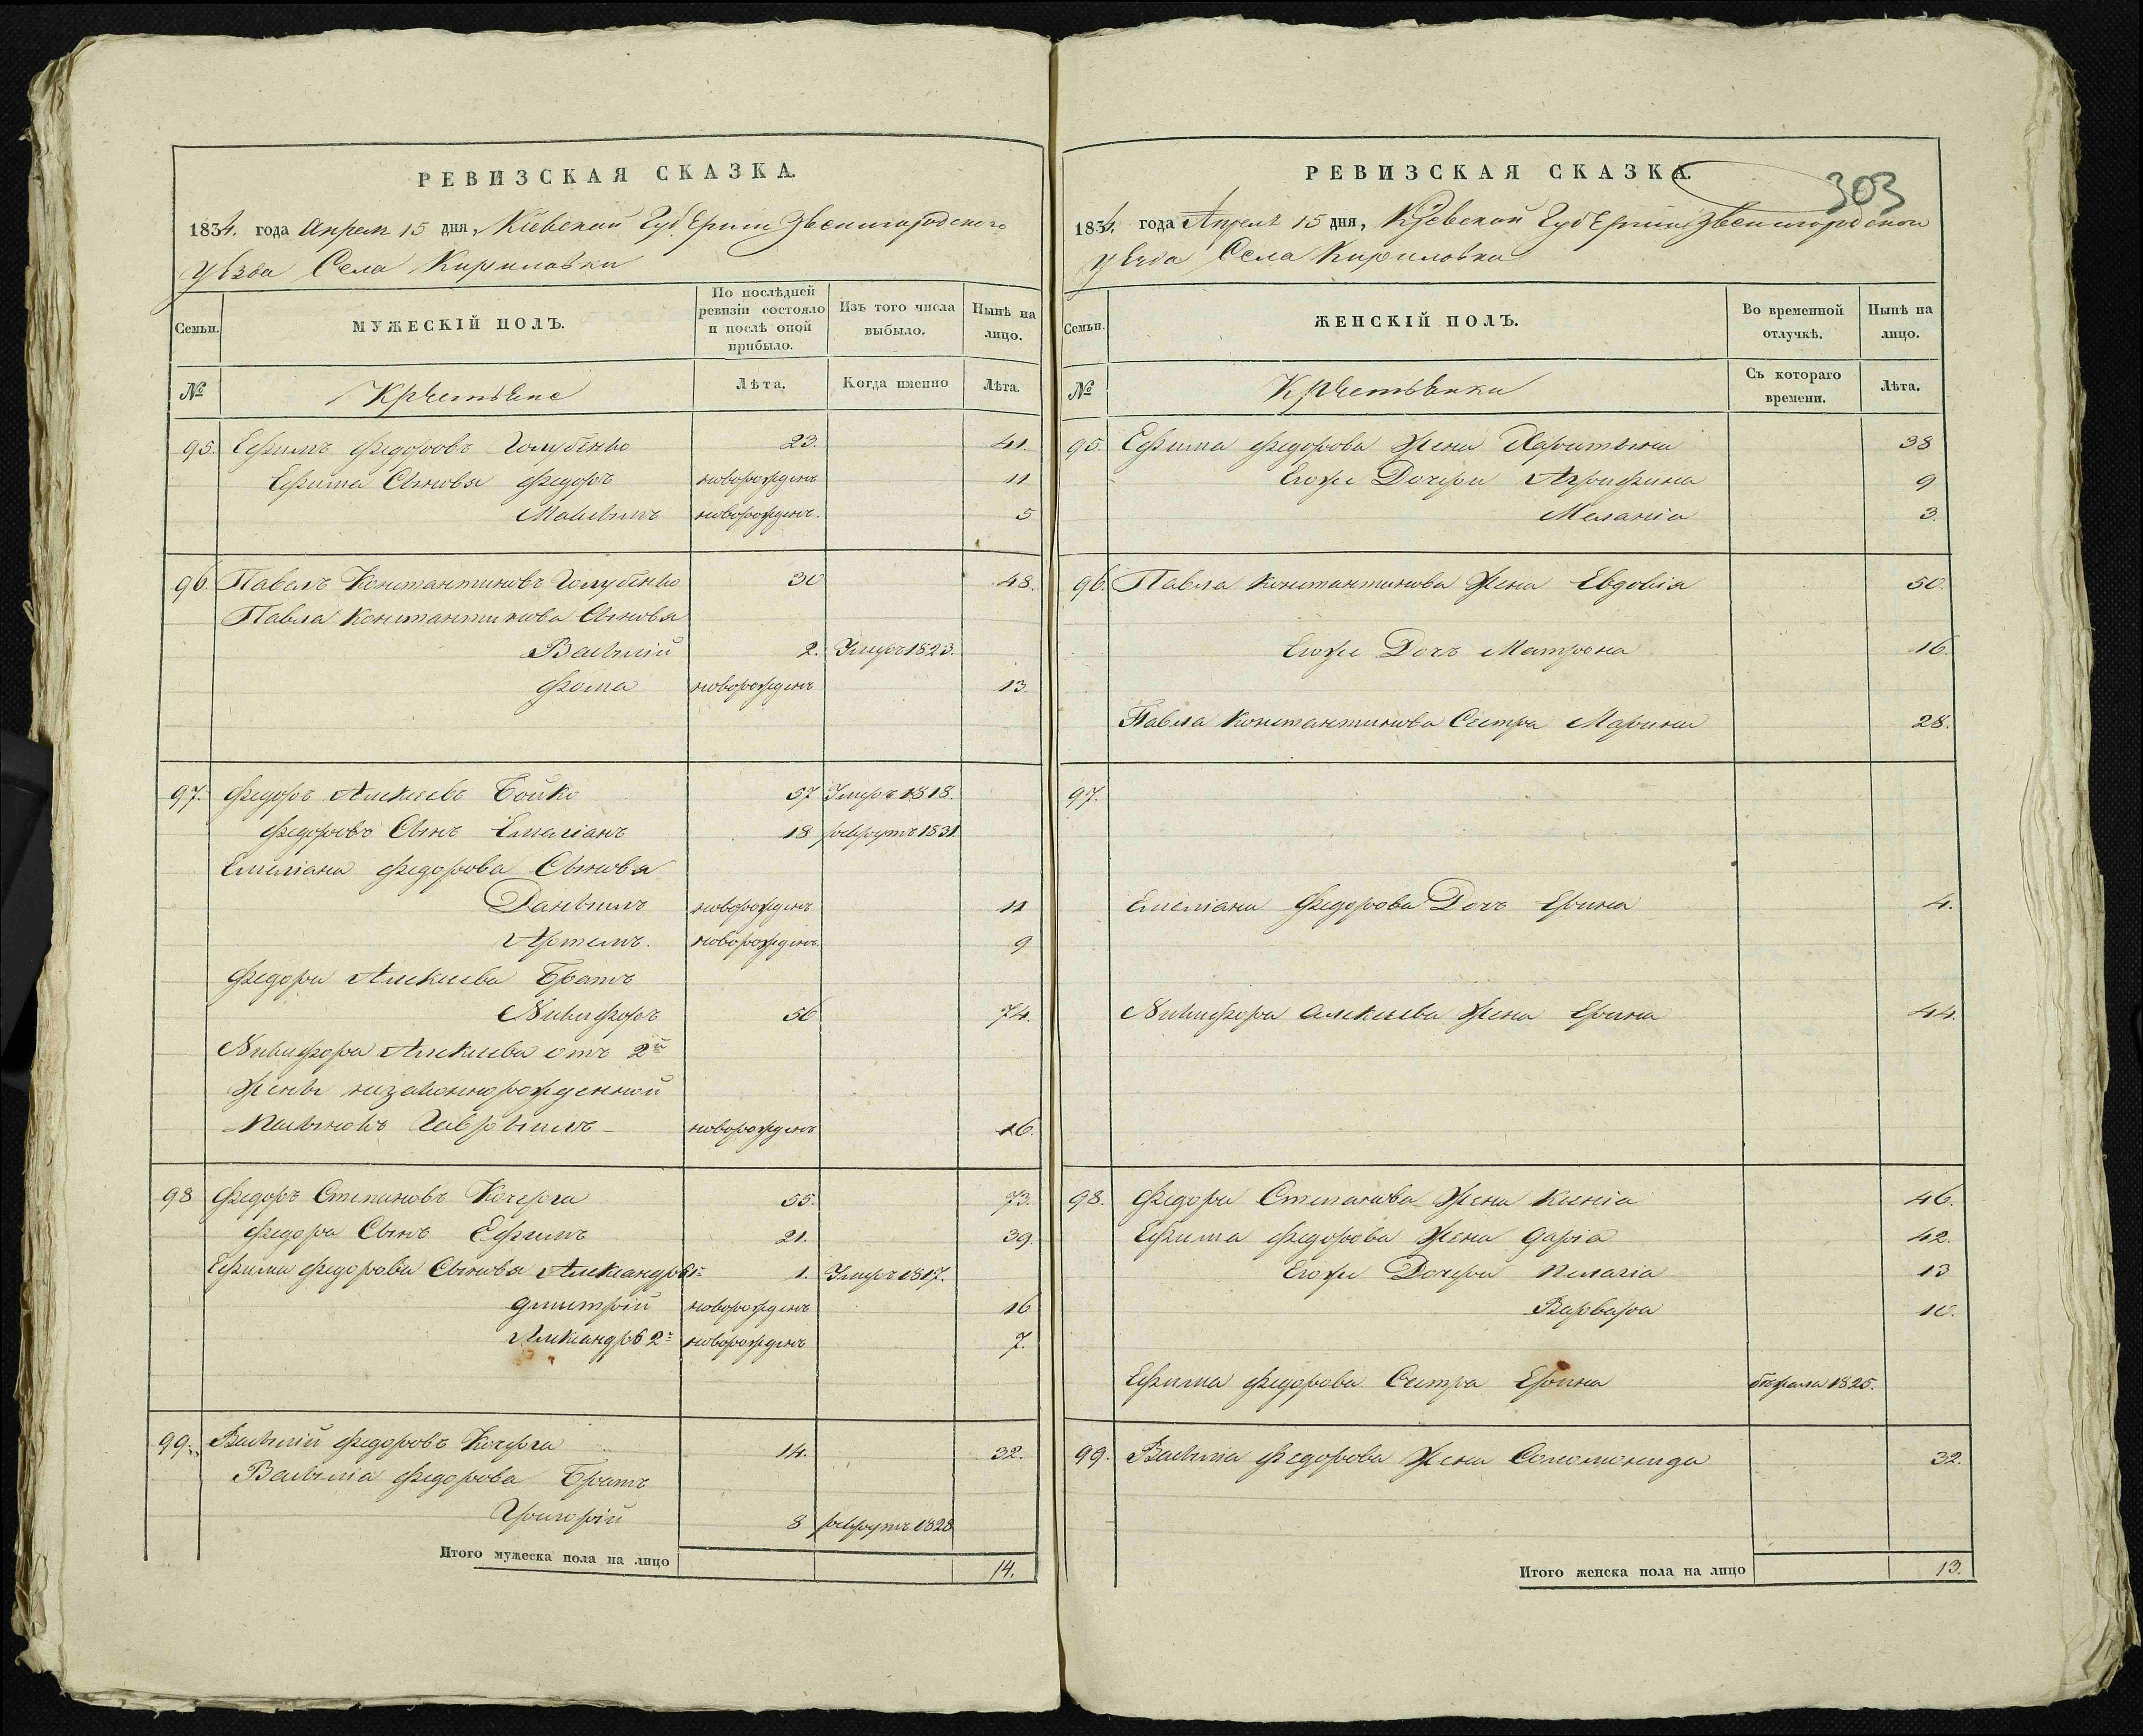 РЕВИЗСКАЯ СКАЗКА.
1834. года Апреля 15 дня, Кіевской Губерніи Звенигородского
Уѣзда Села Кириловки
Семьи.
МУЖЕСКІЙ ПОЛЪ.
По послѣдней ревизіи состояло и послѣ оной прибыло.
Изъ того числа выбыло.
Нынѣ на лицо.
№
Крестьяне
Лѣта.
Когда именно
Лѣта.
95. Ефимъ Федоровъ Голубенко 23. 41.
Ефима Сыновья Федоръ новорожденъ 11
Максимъ новорожден. 5
96. Павелъ Константиновъ Голубенко 30 48.
Павла Константинова Сыновья
Василій 2. Умеръ 1823.
Фома новорожденъ 13.
97. Федоръ Алексеевъ Бойко 57 Умеръ 1818.
Федоровъ Сынъ Емеліанъ 18 рекрутъ 1831.
Емеліана Федорова Сыновья
Данъилъ новорожденъ 11
Артемъ. новорожден. 9
Федора Алексеева Братъ
Никифоръ 56 74.
Никифора Алексеева отъ 2й
Жены незаконнорожденной
Пасынокъ Гаврыилъ новорожденъ 16.
98 Федоръ Степановъ Кочерга 55. 73.
Федора Сынъ Ефимъ 21. 39.
Ефима Федорова Сыновья Александръ 1й 1. Умеръ 1817.
Дмитрій новорожденъ 16
Александръ 2й новорожденъ 7.
99. Василій Федоровъ Кочерга 14. 32.
Василіа Федорова Братъ
Григорій 8 рекрутъ 1828
Итого мужеска пола на лицо 14.
РЕВИЗСКАЯ СКАЗКА.
303
1834. года Апреля 15 дня, Кіевской Губерніи Звенигородского
уезда Села Кириловки
Семьи.
ЖЕНСКІЙ ПОЛЪ.
Во временной отлучкѣ.
Нынѣ на лицо.
№
Крестьянки
Съ котораго времени.
Лѣта.
95. Ефима Федорова Жена Харитына 38
Егоже Дочери Агрифина 9
Меланіа 3.
96. Павла Константинова Жена Евдокія 50.
Егоже Дочъ Матрона 16.
Павла Константинова Сестра Марина 28.
97.
Емеліана Федорова Дочъ Ерина 4.
Никифора Алексеева Жена Ерина 44.
98. Федора Степанова Жена Ксеніа 46.
Ефима Федорова Жена Даріа 42.
Егоже Дочери Пелагіа 13
Варвара 10.
Ефима Федорова Сестра Ерина бежала 1825.
99. Василіа Федорова Жена Соломонида 32.
Итого женска пола на лицо 13.